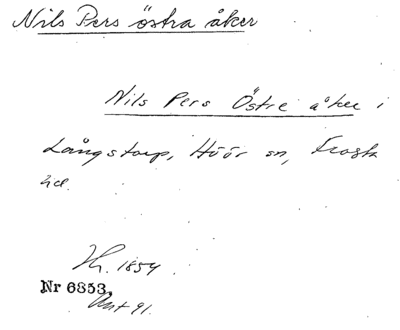 Nils Pers östra åker
Nils Pers Östre åker i
Långstorp, Höör sn, Frosta
hd.
Hr. 1854.
Nr 6853,
Akt 91.